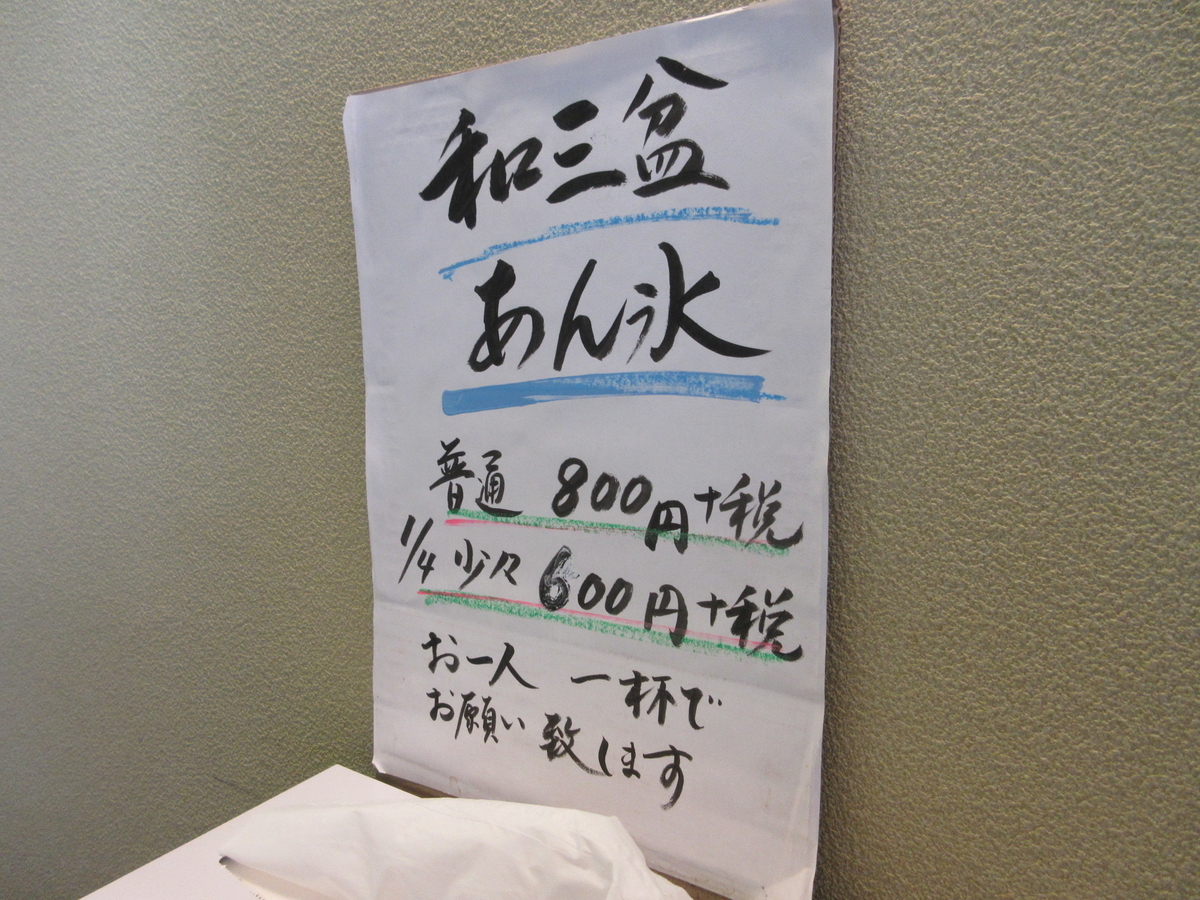 和三盆
あん氷
普通 800円+税
1/4 少々 600円+税
お一人 一杯で
お願い致します